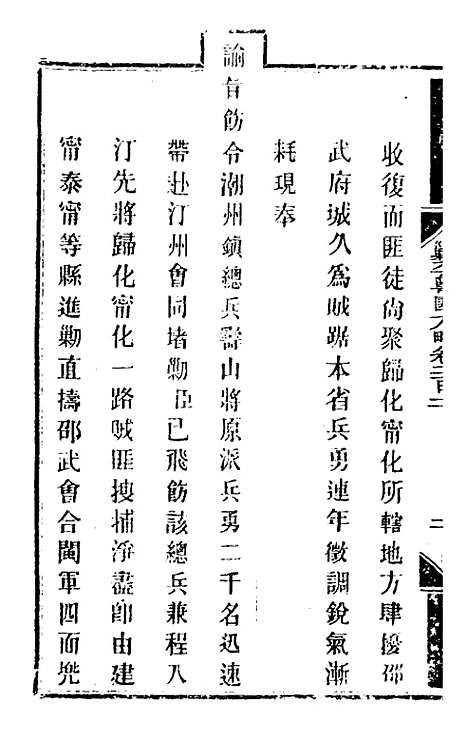 收復而匪徒尙聚歸化甯化所轄地方肆擾邵
武府城久為賊踞本省兵勇連年徵調銳氣漸
耗現奉
諭旨飭令潮州鎮總兵壽山將原派兵勇二千名迅速
帶赴汀州會同堵勦臣已飛飭該總兵兼程入
汀先將歸化甯化一路賊匪搜捕淨盡卽由建
甯泰甯等縣進勦直擣邵武會合閩軍四面兜
二